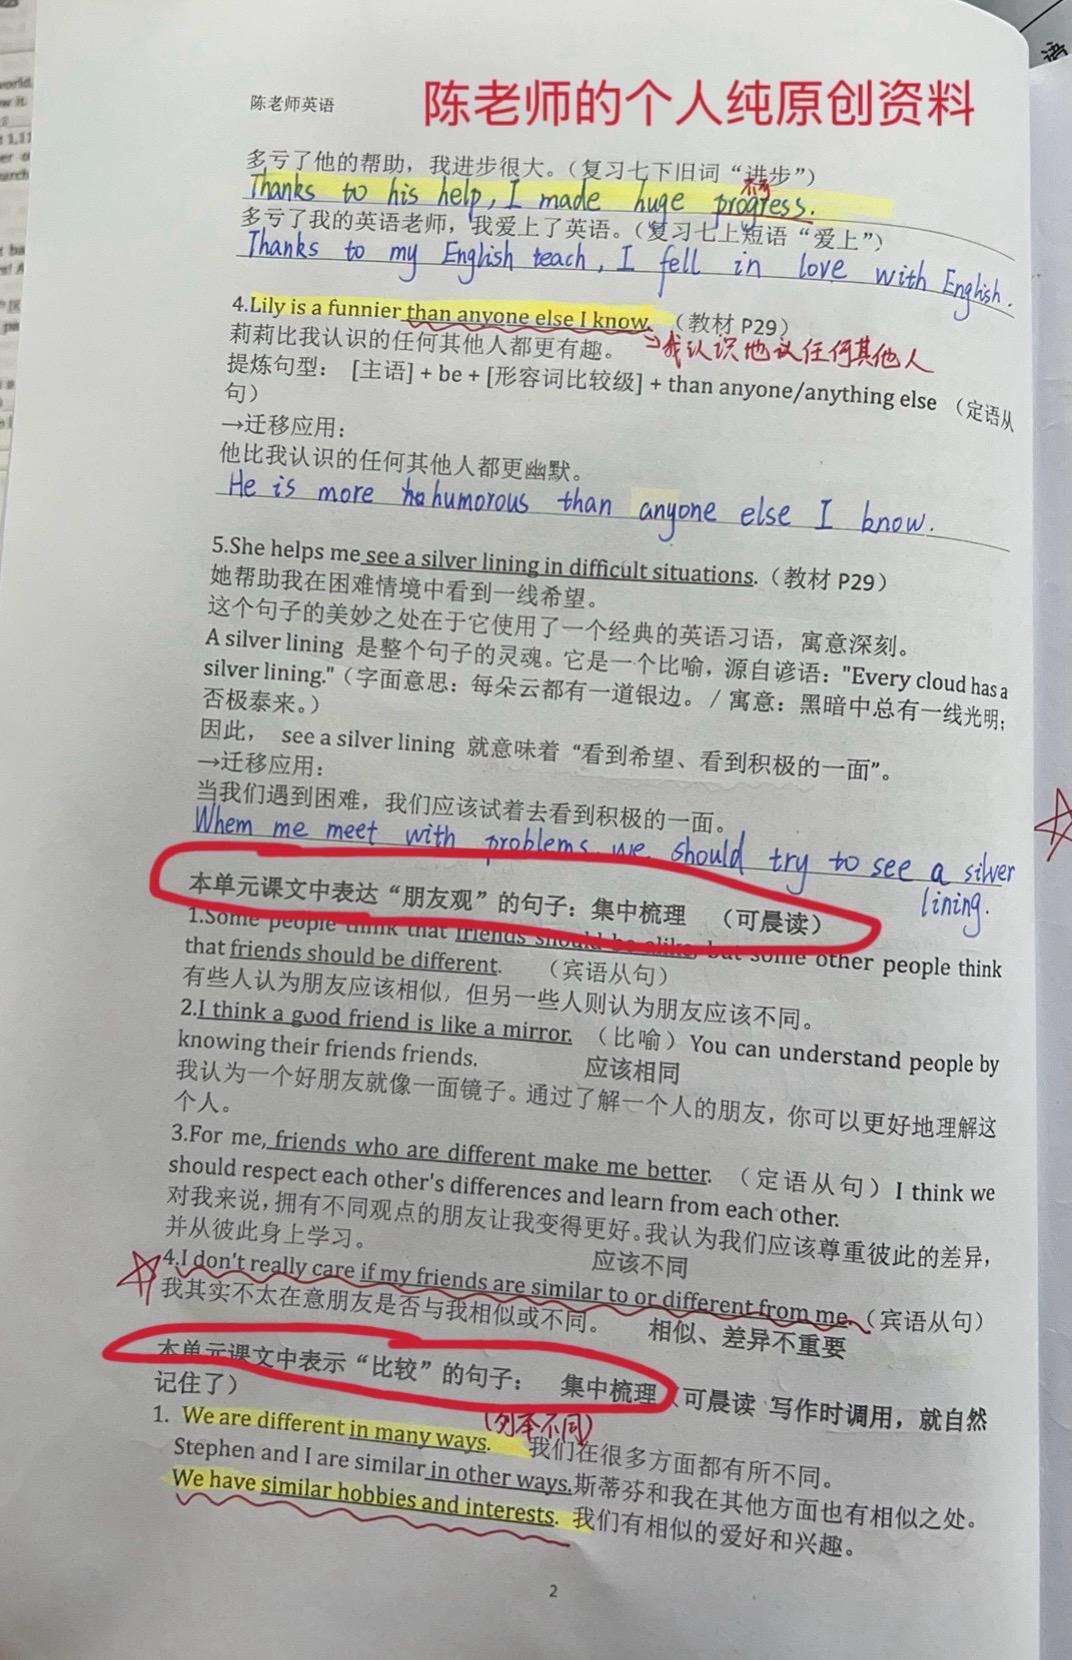 陈老师英语
陈老师的个人纯原创资料
多亏了他的帮助，我进步很大。（复习七下旧词“进步”）
Thanks to his help, I made huge progress.
多亏了我的英语老师，我爱上了英语。（复习七上短语“爱上”）
Thanks to my English teach, I fell in love with English.
4.Lily is a funnier than anyone else I know. （教材 P29）
莉莉比我认识的任何其他人都更有趣。
提炼句型： [主语] + be + [形容词比较级] + than anyone/anything else （定语从
句）
→迁移应用：
他比我认识的任何其他人都更幽默。
He is more humorous than anyone else I know.
5.She helps me see a silver lining in difficult situations.（教材 P29）
她帮助我在困难情境中看到一线希望。
这个句子的美妙之处在于它使用了一个经典的英语习语，寓意深刻。
A silver lining 是整个句子的灵魂。它是一个比喻，源自谚语："Every cloud has a
silver lining."（字面意思：每朵云都有一道银边。/ 寓意：黑暗中总有一线光明；
否极泰来。）
因此， see a silver lining 就意味着“看到希望、看到积极的一面”。
→迁移应用：
当我们遇到困难，我们应该试着去看到积极的一面。
Whem me meet with problems, we should try to see a silver
lining.
本单元课文中表达“朋友观”的句子：集中梳理 （可晨读）
1.Some people think that friends should be alike, but some other people think
that friends should be different. （宾语从句）
有些人认为朋友应该相似，但另一些人则认为朋友应该不同。
2.I think a good friend is like a mirror. （比喻）You can understand people by
knowing their friends friends. 应该相同
我认为一个好朋友就像一面镜子。通过了解一个人的朋友，你可以更好地理解这
个人。
3.For me, friends who are different make me better. （定语从句）I think we
should respect each other's differences and learn from each other.
对我来说，拥有不同观点的朋友让我变得更好。我认为我们应该尊重彼此的差异，
并从彼此身上学习。 应该不同
4.I don't really care if my friends are similar to or different from me.（宾语从句）
我其实不太在意朋友是否与我相似或不同。 相似、差异不重要
本单元课文中表示“比较”的句子： 集中梳理（可晨读 写作时调用，就自然
记住了）
1. We are different in many ways. 我们在很多方面都有所不同。
Stephen and I are similar in other ways.斯蒂芬和我在其他方面也有相似之处。
We have similar hobbies and interests. 我们有相似的爱好和兴趣。
2